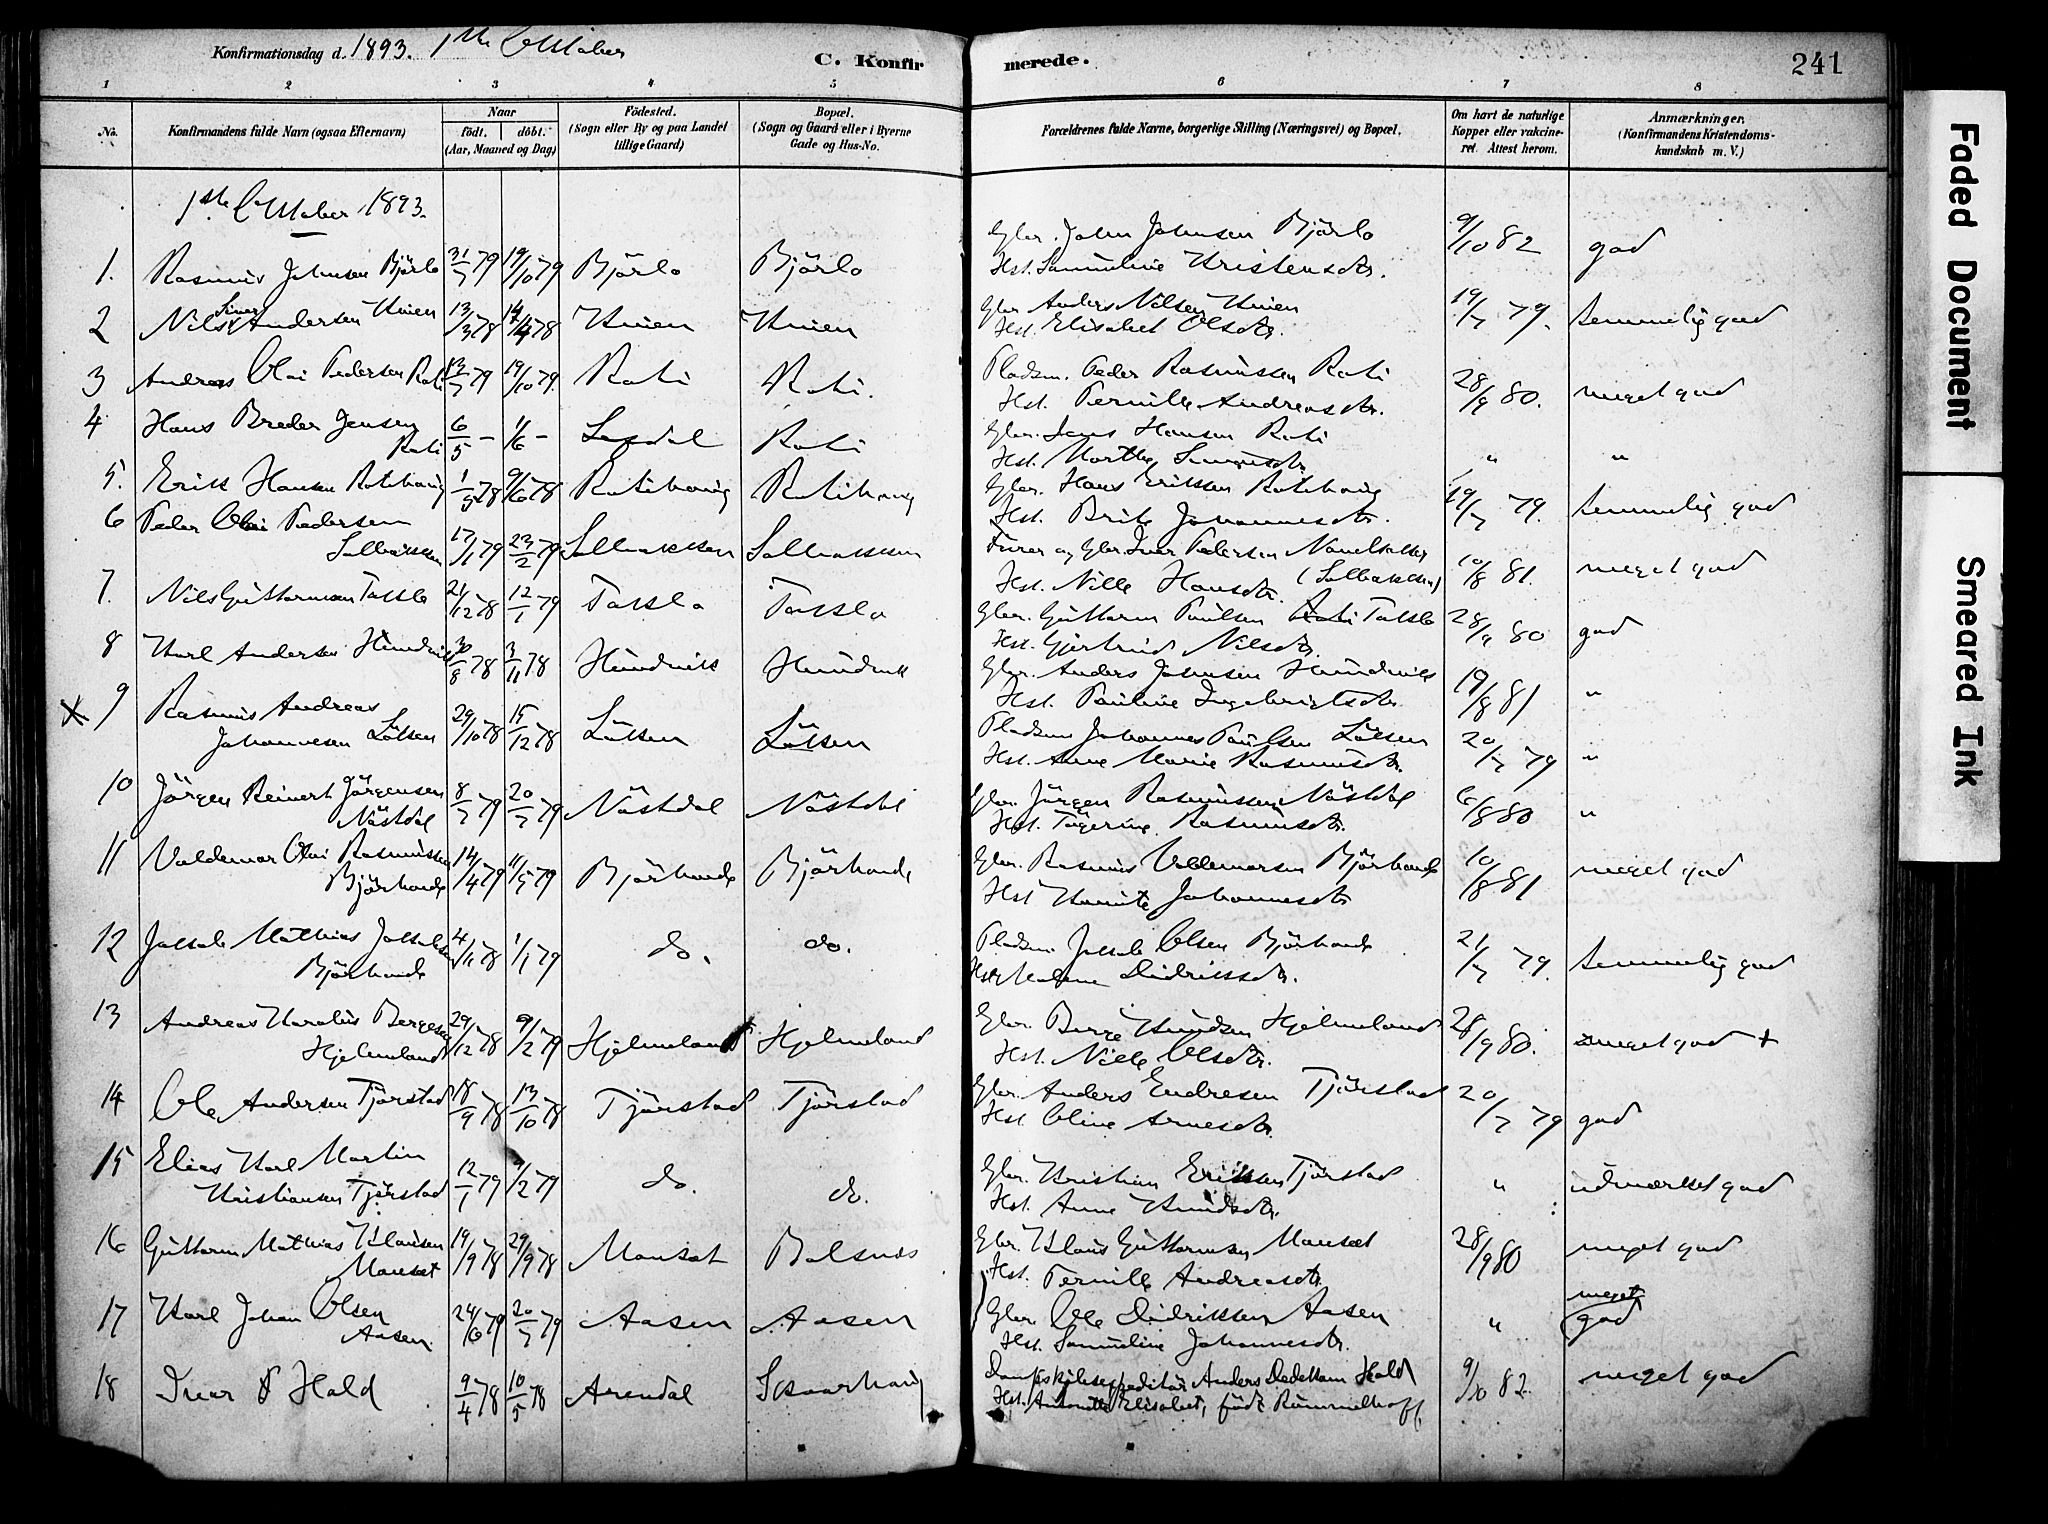 Konfirmationsdag d. 1893. 1ste Oktober
C. Konfirmerede.
241
1 2 3 4 5 6 7 8
No. Konfirmandens fulde Navn (ogsaa Efternavn) Naar födt. döbt. (Aar, Maaned og Dag) Födested. (Sogn eller By og paa Landet tillige Gaard) Bopæl. (Sogn og Gaard eller i Byerne Gade og Hus-No. Forældrenes fulde Navne, borgerlige Stilling (Næringsvei) og Bopæl. Om havt de naturlige Kopper eller vakcineret. Attest herom. Anmærkninger. (Konfirmandens Kristendomskundskab m. V.)
1ste Oktober 1893.
1. Rasmus Johnsen Bjørlo 31/7 79 19/10 79 Bjørlo Bjørlo Gbr. John Johnsen Bjørlo 9/10 82 god
Hst. Samueline Kristensdtr.
2 Nils Andersen 13/3 78 14/4 78 Gbr. Anders Nilsen 19/7 79. temmelig god
Hst. Elisabet Olsdtr.
3 Andreas Olai Pedersen Roti 79 19/10 79. Roti Roti. Pladsm. Peder Rasmussen Roti 28/9 80. meget god
Hst. Pernille Andreasdtr.
4 Hans Breder Jensen 6/5 - 1/6 - Roti Gbr. Jens Hansen Roti " "
Roti Hst. Marthe
5. Erik Hansen Rotihaug 1/5 78 9/6 78 Rotihaug Rotihaug Gbr. Hans Eriksen Rotihaug 19/7 79. temmelig god
Hst. Brite Johannesdtr.
6 Peder Olai Pedersen 17/1 79 23/2 79 Solbakken Solbakken Furer og Gbr. Iver Pedersen 10/8 81. meget god
Solbakken Hst. Nille Hansdtr. (Solbakken)
7. Nils Guttormsen Taklo 21/12 78 12/1 79 Taklo Taklo Gbr. Guttorm Paulsen Taklo 28/9 80 god
Hst. Gjertrud Nilsdtr.
8 Karl Andersen Hundvik 30/8 78 3/11 78 Hundvik Hundvik Gbr. Anders Johnsen Hundvik 19/8 81 "
Hst. Pauline Ingebrigtsdtr.
x 9 Rasmus Andreas 29/10 78 15/12 78 Løkken Løkken Pladsm Johannes Paulsen Løkken 20/7 79 "
Johannesen Løkken Hst. Anne Marie Rasmusdtr.
10 Jørgen Reinert Jørgensen 8/7 79 20/7 79 Nøstdal Nøstdal Gbr. Jørgen Rasmussen Nøstdal 6/8 80 "
Nøstdal Hst. Rasmusdtr.
11 Valdemar Olai Rasmussen 14/4 79 11/5 79 Bjørhovde Bjørhovde Gbr. Rasmus Valdemarsen Bjørhovde 10/8 81 meget god
Bjørhovde Hst Johannesdtr
12 Jakob Mathias Jakobsen 4/11 78 1/1 79 do. do. Pladsm. Jakob Olsen Bjørhovde 21/7 79. temmelig god
Bjørhovde Hst. Didriksdtr.
13 Andreas Karolius Bergesen 29/12 78 9/2 79 Hjelmeland Hjelmeland Gbr. Berge Knudsen Hjelmeland 28/9 80. meget god +
Hjelmeland Hst. Nille Olsdtr.
14 Ole Andersen Tjørstad 18/9 78 13/10 78 Tjørstad Tjørstad Gbr. Anders Endresen Tjørstad 20/7 79 god
Hst. Oline Arnesdtr.
15 Elias Karl Martin 12/1 79 9/2 79 do. do. Gbr. Kristian Eriksen Tjørstad " udmærket god
Kristiansen Tjørstad Hst. Anne Knudsdtr.
16 Guttorm Mathias Klausen 19/9 78 29/9 78 Monset Gbr. Klaus Guttormsen Monset 28/9 80 meget god
Monset Hst. Pernille Andreasdtr
17 Karl Johan Olsen 24/6 79 20/7 79 Aasen Aasen Gbr Ole Didriksen Aasen " meget god
Aasen. Hst. Samueline Johannesdtr.
18 Ivar Hald 9/4 78 10/5 78 Arendal Skaarhaug Dampskibsexpeditør Anders Hald 9/10 82 meget god
Hst. Elisabet, født Rummelhoff
Faded Document
Smeared Ink